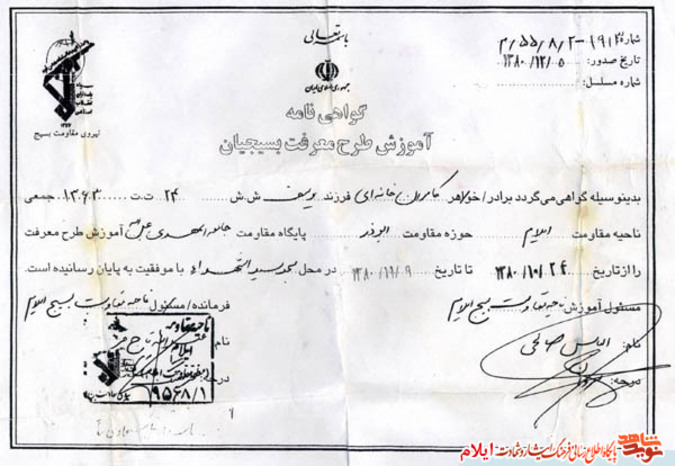 باسمه تعالی
شماره: ۱۹۱۲-۸/۲/۵۵/م
تاریخ صدور: ۱۳۸۰/۱۲/۵
شماره مسلسل:
جمهوری اسلامی ایران
نیروی مقاومت بسیج
گواهی نامه
آموزش طرح معرفت بسیجیان
بدینوسیله گواهی می گردد برادر/خواهر کامران خانه ای فرزند یوسف ش.ش ۲۴ ت.ت ۱۳۶۳ جمعی
ناحیه مقاومت ایلام حوزه مقاومت ابوذر پایگاه مقاومت جامعه المهدی آموزش طرح معرفت
را از تاریخ ۱۳۸۰/۱۰/۲۴ تا تاریخ ۱۳۸۰/۱۱/۹ در محل مسجد سیدالشهداء با موفقیت به پایان رسانیده است.
مسئول آموزش ناحیه مقاومت بسیج ایلام فرمانده/مسئول ناحیه مقاومت بسیج ایلام
نام: الماس صالحی نام:
درجه: درجه:
ناحیه مقاومت
ایلام
۱۹۵۶۸/۱
نوید شاهد پایگاه اطلاع رسانی فرهنگ ایثار و شهادت ایلام